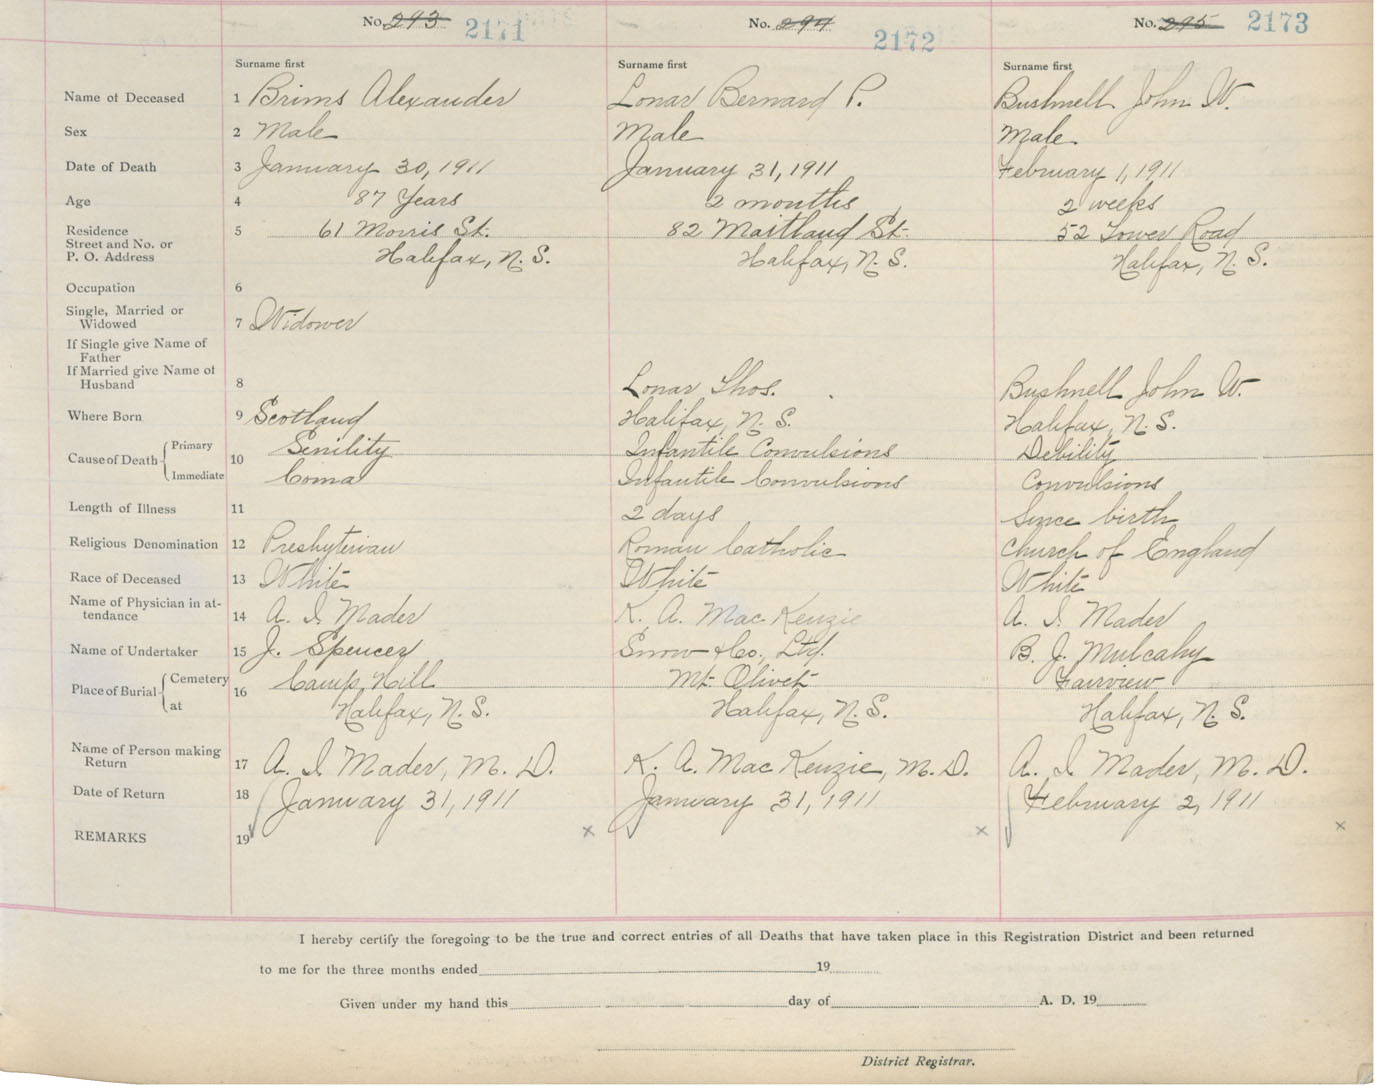 No. 293 2171 No. 294 2172 No. 295 2173
Surname first Surname first Surname first
Name of Deceased 1 Brims Alexander Lonar Bernard P. Bushnell John W.
Sex 2 Male Male Male
Date of Death 3 January 30, 1911 January 31, 1911 February 1, 1911
Age 4 87 Years 2 months 2 weeks
Residence 5 61 Morris St. 82 Maitland St. 52 Tower Road
Street and No. or
P. O. Address Halifax, N. S. Halifax, N. S. Halifax, N. S.
Occupation 6
Single, Married or
Widowed 7 Widower
If Single give Name of
Father
If Married give Name of
Husband 8 Lonar Thos. Bushnell John W.
Where Born 9 Scotland Halifax, N. S. Halifax, N. S.
Cause of Death Primary 10 Senility Infantile Convulsions Debility
Immediate Coma Infantile Convulsions Convulsions
Length of Illness 11 2 days Since birth
Religious Denomination 12 Presbyterian Roman Catholic Church of England
Race of Deceased 13 White White White
Name of Physician in at-
tendance 14 A. I. Mader K. A. MacKenzie A. I. Mader
Name of Undertaker 15 J. Spencer Snow & Co., Ltd. B. J. Mulcahy
Place of Burial Cemetery 16 Camp Hill Mt. Olivet Fairview
at Halifax, N. S. Halifax, N. S. Halifax, N. S.
Name of Person making
Return 17 A. I. Mader, M. D. K. A. MacKenzie, M. D. A. I. Mader, M. D.
Date of Return 18 January 31, 1911 January 31, 1911 February 2, 1911
REMARKS 19 x x x
I hereby certify the foregoing to be the true and correct entries of all Deaths that have taken place in this Registration District and been returned
to me for the three months ended 19
Given under my hand this day of A. D. 19
District Registrar.